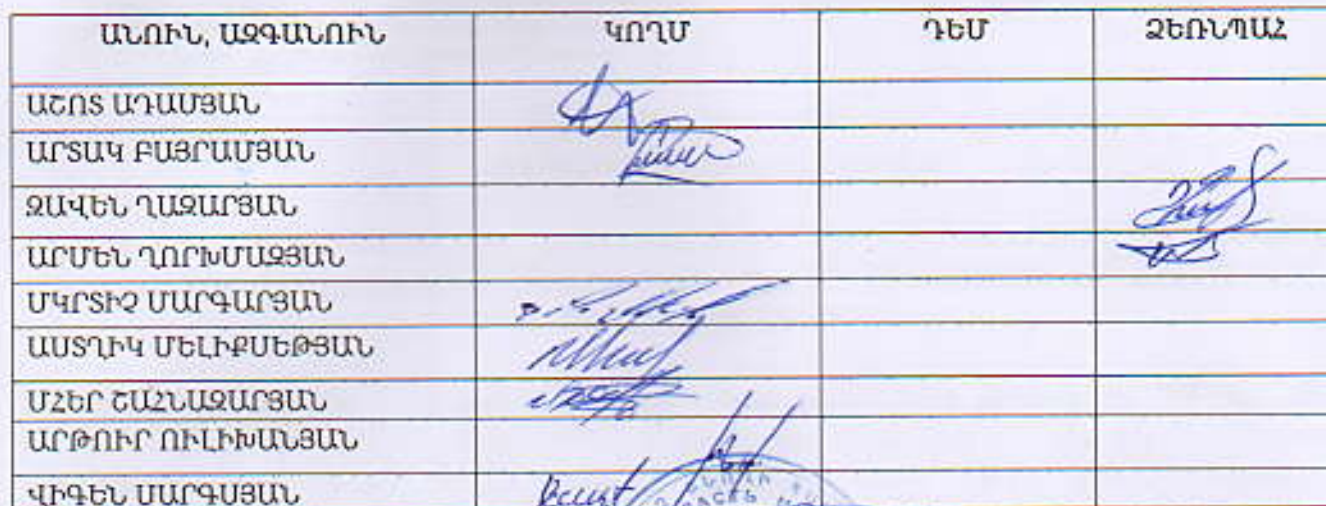 ԱՆՈՒՆ, ԱԶԳԱՆՈՒՆ ԿՈՂՄ ԴԵՄ ՁԵՌՆՊԱՀ
ԱՇՈՏ ԱԴԱՄՅԱՆ
ԱՐՏԱԿ ԲԱՅՐԱՄՅԱՆ
ԶԱՎԵՆ ՂԱԶԱՐՅԱՆ
ԱՐՄԵՆ ՂՈՐԽՄԱԶՅԱՆ
ՄԿՐՏԻՉ ՄԱՐԳԱՐՅԱՆ
ԱՍՏՂԻԿ ՄԵԼԻՔՍԵԹՅԱՆ
ՄՀԵՐ ՇԱՀՆԱԶԱՐՅԱՆ
ԱՐԹՈՒՐ ՈՒԼԻԽԱՆՅԱՆ
ՎԻԳԵՆ ՍԱՐԳՍՅԱՆ